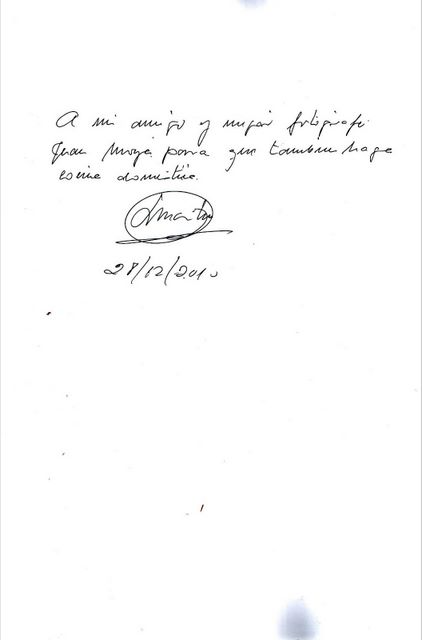 A mi amigo y mejor fotógrafo
Juan Moya para que tambien haga
cocina domestica.
28/12/2010